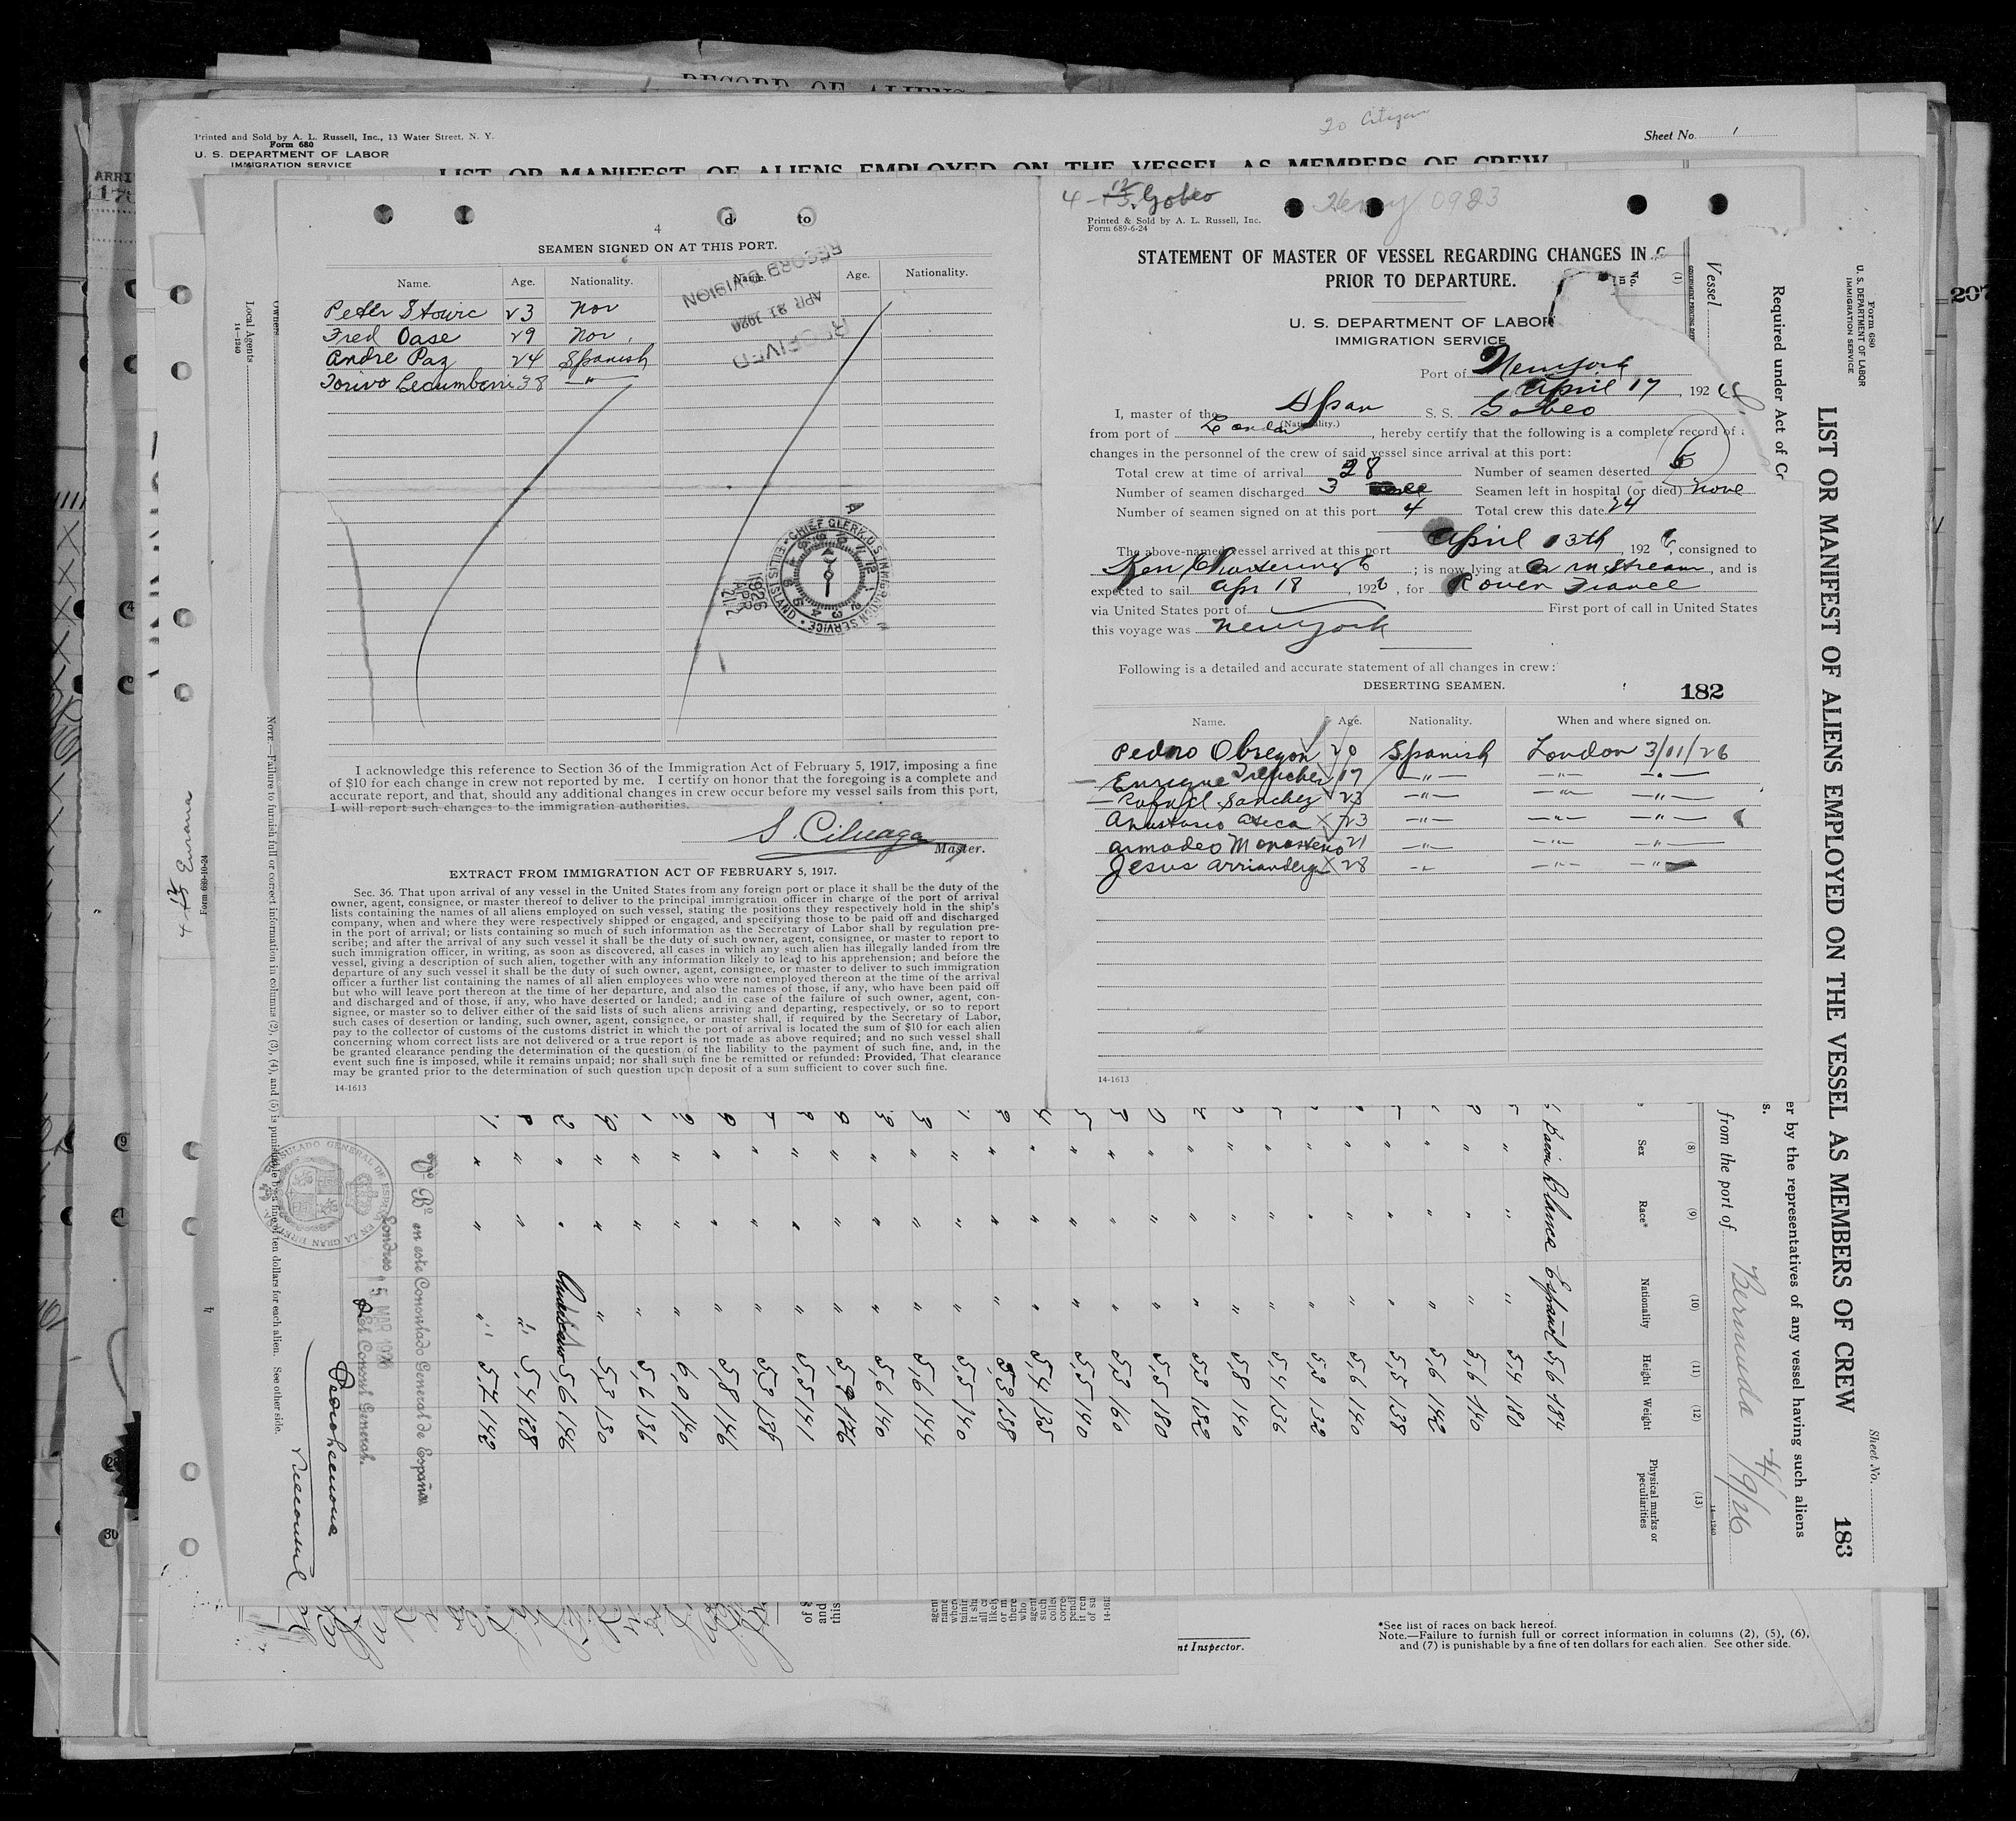 RECORD OF ALIENS
20 Citizen
Printed and Sold by A. L. Russell, Inc., 13 Water Street, N. Y.
Form 680
U. S. DEPARTMENT OF LABOR
IMMIGRATION SERVICE
Sheet No. 1
LIST OR MANIFEST OF ALIENS EMPLOYED ON THE VESSEL AS MEMBERS OF CREW
4
SEAMEN SIGNED ON AT THIS PORT.
Name. Age. Nationality. Name. Age. Nationality.
Peter Stowic 23 Nor
Fred Oase 29 Nor.
Andre Paz 24 Spanish
Torivo Lecumberri 38 —"—
RECORD DIVISION
APR 21 1926
RECEIVED
CHIEF CLERK, U.S. IMMIGRATION SERVICE • ELLIS ISLAND •
1926 APR 21
I acknowledge this reference to Section 36 of the Immigration Act of February 5, 1917, imposing a fine
of $10 for each change in crew not reported by me. I certify on honor that the foregoing is a complete and
accurate report, and that, should any additional changes in crew occur before my vessel sails from this port,
I will report such changes to the immigration authorities.
S. Ciluaga
Master.
EXTRACT FROM IMMIGRATION ACT OF FEBRUARY 5, 1917.
Sec. 36. That upon arrival of any vessel in the United States from any foreign port or place it shall be the duty of the
owner, agent, consignee, or master thereof to deliver to the principal immigration officer in charge of the port of arrival
lists containing the names of all aliens employed on such vessel, stating the positions they respectively hold in the ship's
company, when and where they were respectively shipped or engaged, and specifying those to be paid off and discharged
in the port of arrival; or lists containing so much of such information as the Secretary of Labor shall by regulation pre-
scribe; and after the arrival of any such vessel it shall be the duty of such owner, agent, consignee, or master to report to
such immigration officer, in writing, as soon as discovered, all cases in which any such alien has illegally landed from the
vessel, giving a description of such alien, together with any information likely to lead to his apprehension; and before the
departure of any such vessel it shall be the duty of such owner, agent, consignee, or master to deliver to such immigration
officer a further list containing the names of all alien employees who were not employed thereon at the time of the arrival
but who will leave port thereon at the time of her departure, and also the names of those, if any, who have been paid off
and discharged and of those, if any, who have deserted or landed; and in case of the failure of such owner, agent, con-
signee, or master so to deliver either of the said lists of such aliens arriving and departing, respectively, or so to report
such cases of desertion or landing, such owner, agent, consignee, or master shall, if required by the Secretary of Labor,
pay to the collector of customs of the customs district in which the port of arrival is located the sum of $10 for each alien
concerning whom correct lists are not delivered or a true report is not made as above required; and no such vessel shall
be granted clearance pending the determination of the question of the liability to the payment of such fine, and, in the
event such fine is imposed, while it remains unpaid; nor shall such fine be remitted or refunded: Provided, That clearance
may be granted prior to the determination of such question upon deposit of a sum sufficient to cover such fine.
14-1613
4 - 13. Gobeo
Printed & Sold by A. L. Russell, Inc.
Form 689-6-24
STATEMENT OF MASTER OF VESSEL REGARDING CHANGES IN
PRIOR TO DEPARTURE.
U. S. DEPARTMENT OF LABOR
IMMIGRATION SERVICE
Port of New York
April 17, 1926
I, master of the Span S. S. Gobeo
(Nationality.)
from port of London, hereby certify that the following is a complete record of
changes in the personnel of the crew of said vessel since arrival at this port:
Total crew at time of arrival 28 Number of seamen deserted 6
Number of seamen discharged 3 Seamen left in hospital (or died) none
Number of seamen signed on at this port 4 Total crew this date 24
The above-named vessel arrived at this port April 13th, 1926, consigned to
; is now lying at in stream, and is
expected to sail Apr 18, 1926, for Rouen France
via United States port of First port of call in United States
this voyage was New York
Following is a detailed and accurate statement of all changes in crew:
DESERTING SEAMEN.
182
Name. Age. Nationality. When and where signed on.
Pedro Obregon 20 Spanish London 3/11/26
Enrique 17 —"— —"— —"—
Rafael Sanchez 23 —"— —"— —"—
Anastasio Ateca 23 —"— —"— —"—
Armadeo Monasterio 21 —"— —"— —"—
Jesus Arriandiga 28 —"— —"— —"—
14-1613
Form 680
U. S. DEPARTMENT OF LABOR
IMMIGRATION SERVICE
LIST OR MANIFEST OF ALIENS EMPLOYED ON THE VESSEL AS MEMBERS OF CREW
Sheet No.
183
Required under Act of
er by the representatives of any vessel having such aliens
Vessel
from the port of Bermuda 4/9/26
(1) (8) (9) (10) (11) (12) (13)
No. Sex Race* Nationality Height Weight Physical marks or peculiarities
Blanca Español 5,6 184
5,4 180
5,6 140
5,6 142
5,5 138
5,6 140
5,3 132
5,4 136
5,8 140
5,3 132
5,5 180
5,3 160
5,5 140
5,4 135
5,3 138
5,5 140
5,6 144
5,6 140
5,9 176
5,5 141
5,3 135
5,8 146
6,0 140
5,6 136
5,3 130
5,6 146
5,4 128
5,7 142
Vº Bº en este Consulado General de España
Londres 15 MAR 1926
El Consul General.
CONSULADO GENERAL DE ESPAÑA EN LA GRAN BRETAÑA
Viceconsul
Owners
Local Agents
14-1240
NOTE.—Failure to furnish full or correct information in columns (2), (3), (4), and (5) is punishable by a fine of ten dollars for each alien. See other side.
Form 689-10-24
nt Inspector.
*See list of races on back hereof.
Note.—Failure to furnish full or correct information in columns (2), (5), (6),
and (7) is punishable by a fine of ten dollars for each alien. See other side.
207